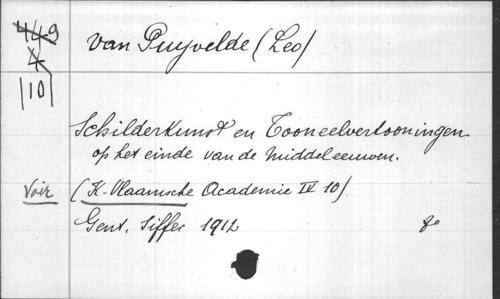 449
4
|10|
van Puyvelde (Leo)
Schilderkunst en Tooneelvertooningen
op het einde van de Middeleeuwen.
Voir (K. Vlaamsche Academie IV 10)
Gent. Siffer 1912 8º